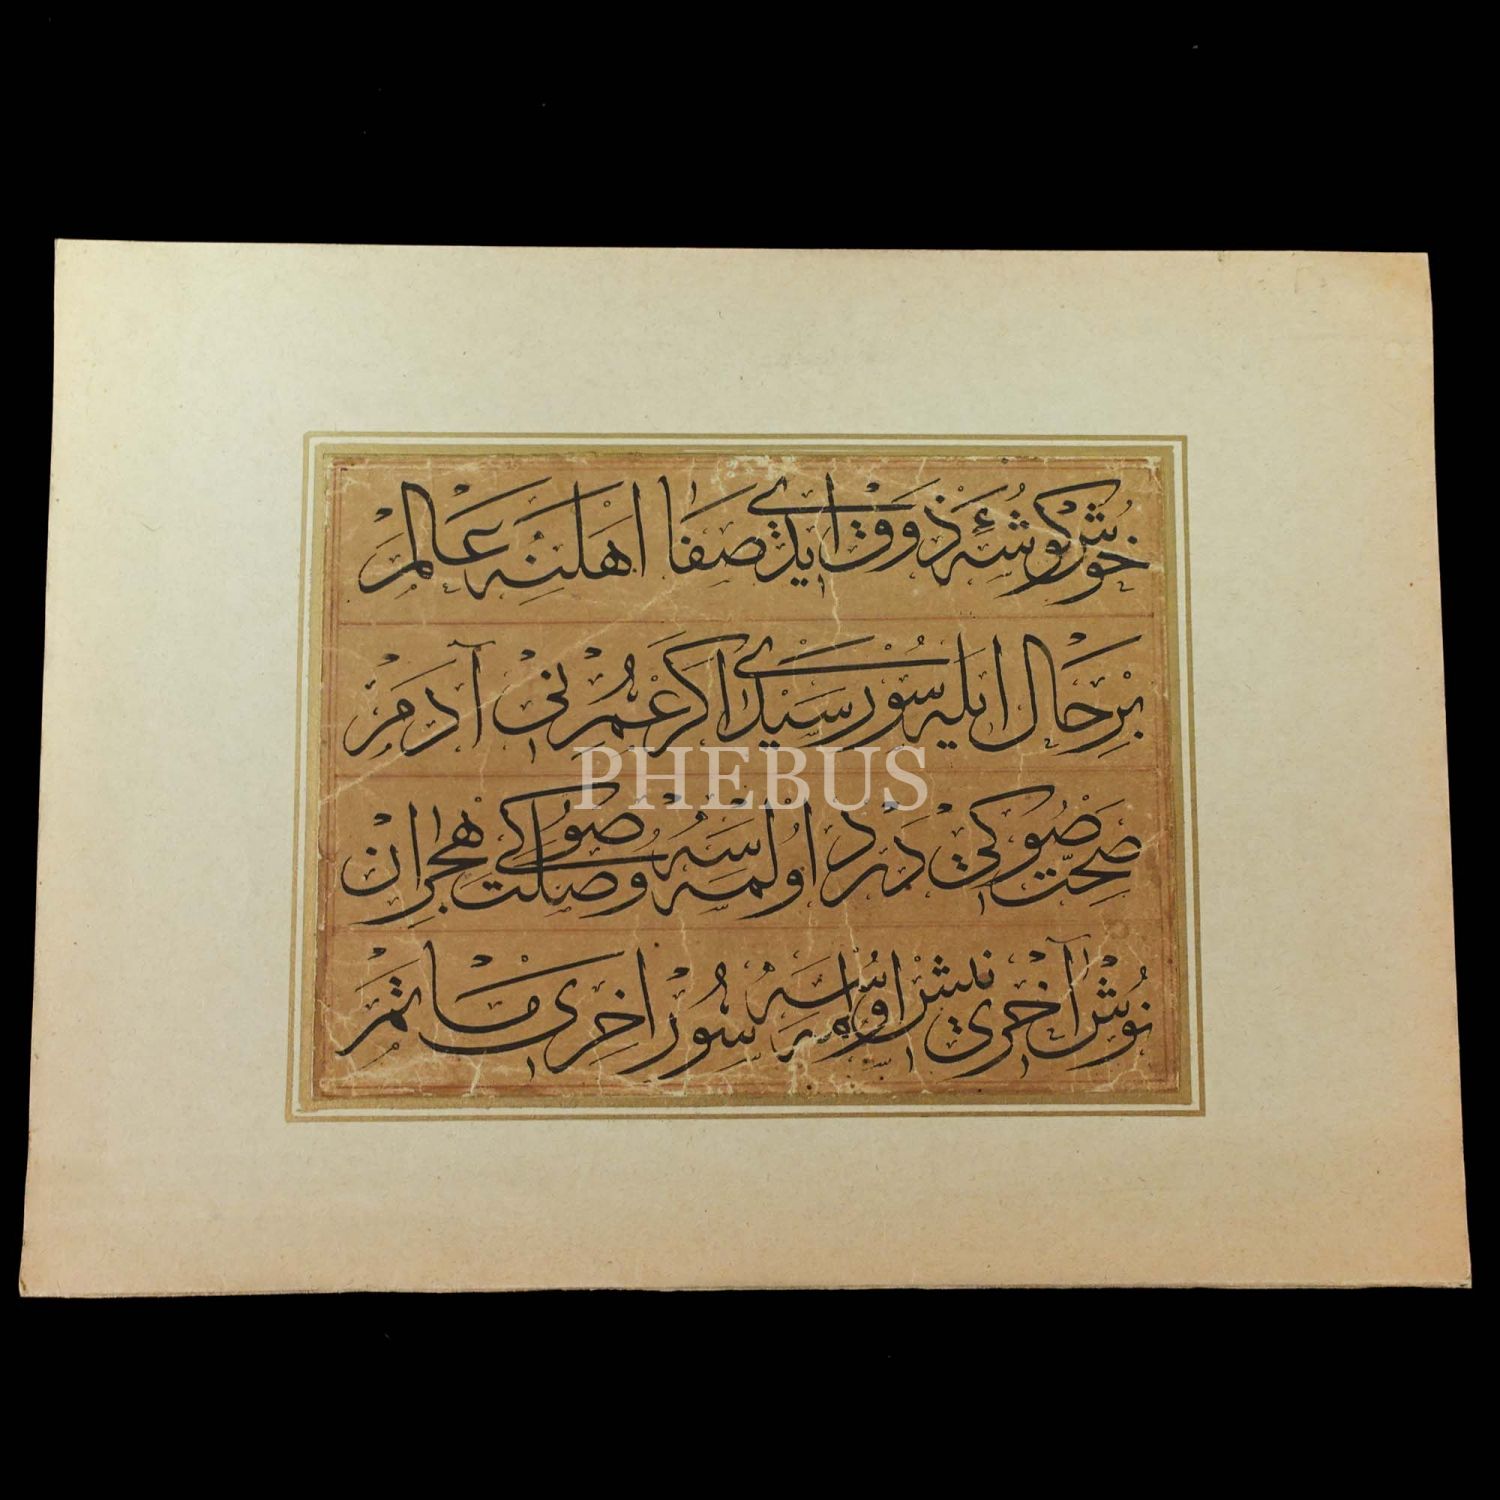 خوش كوشهٔ ذوق ايدى صفا اهلنه عالم
بر حال ايله سورسيدى اكر عمرنى آدم
صحت صوكى درد اولمسه وصلت صوكى هجران
نوش آخرى نيش اولمسه سور آخرى ماتم
PHEBUS